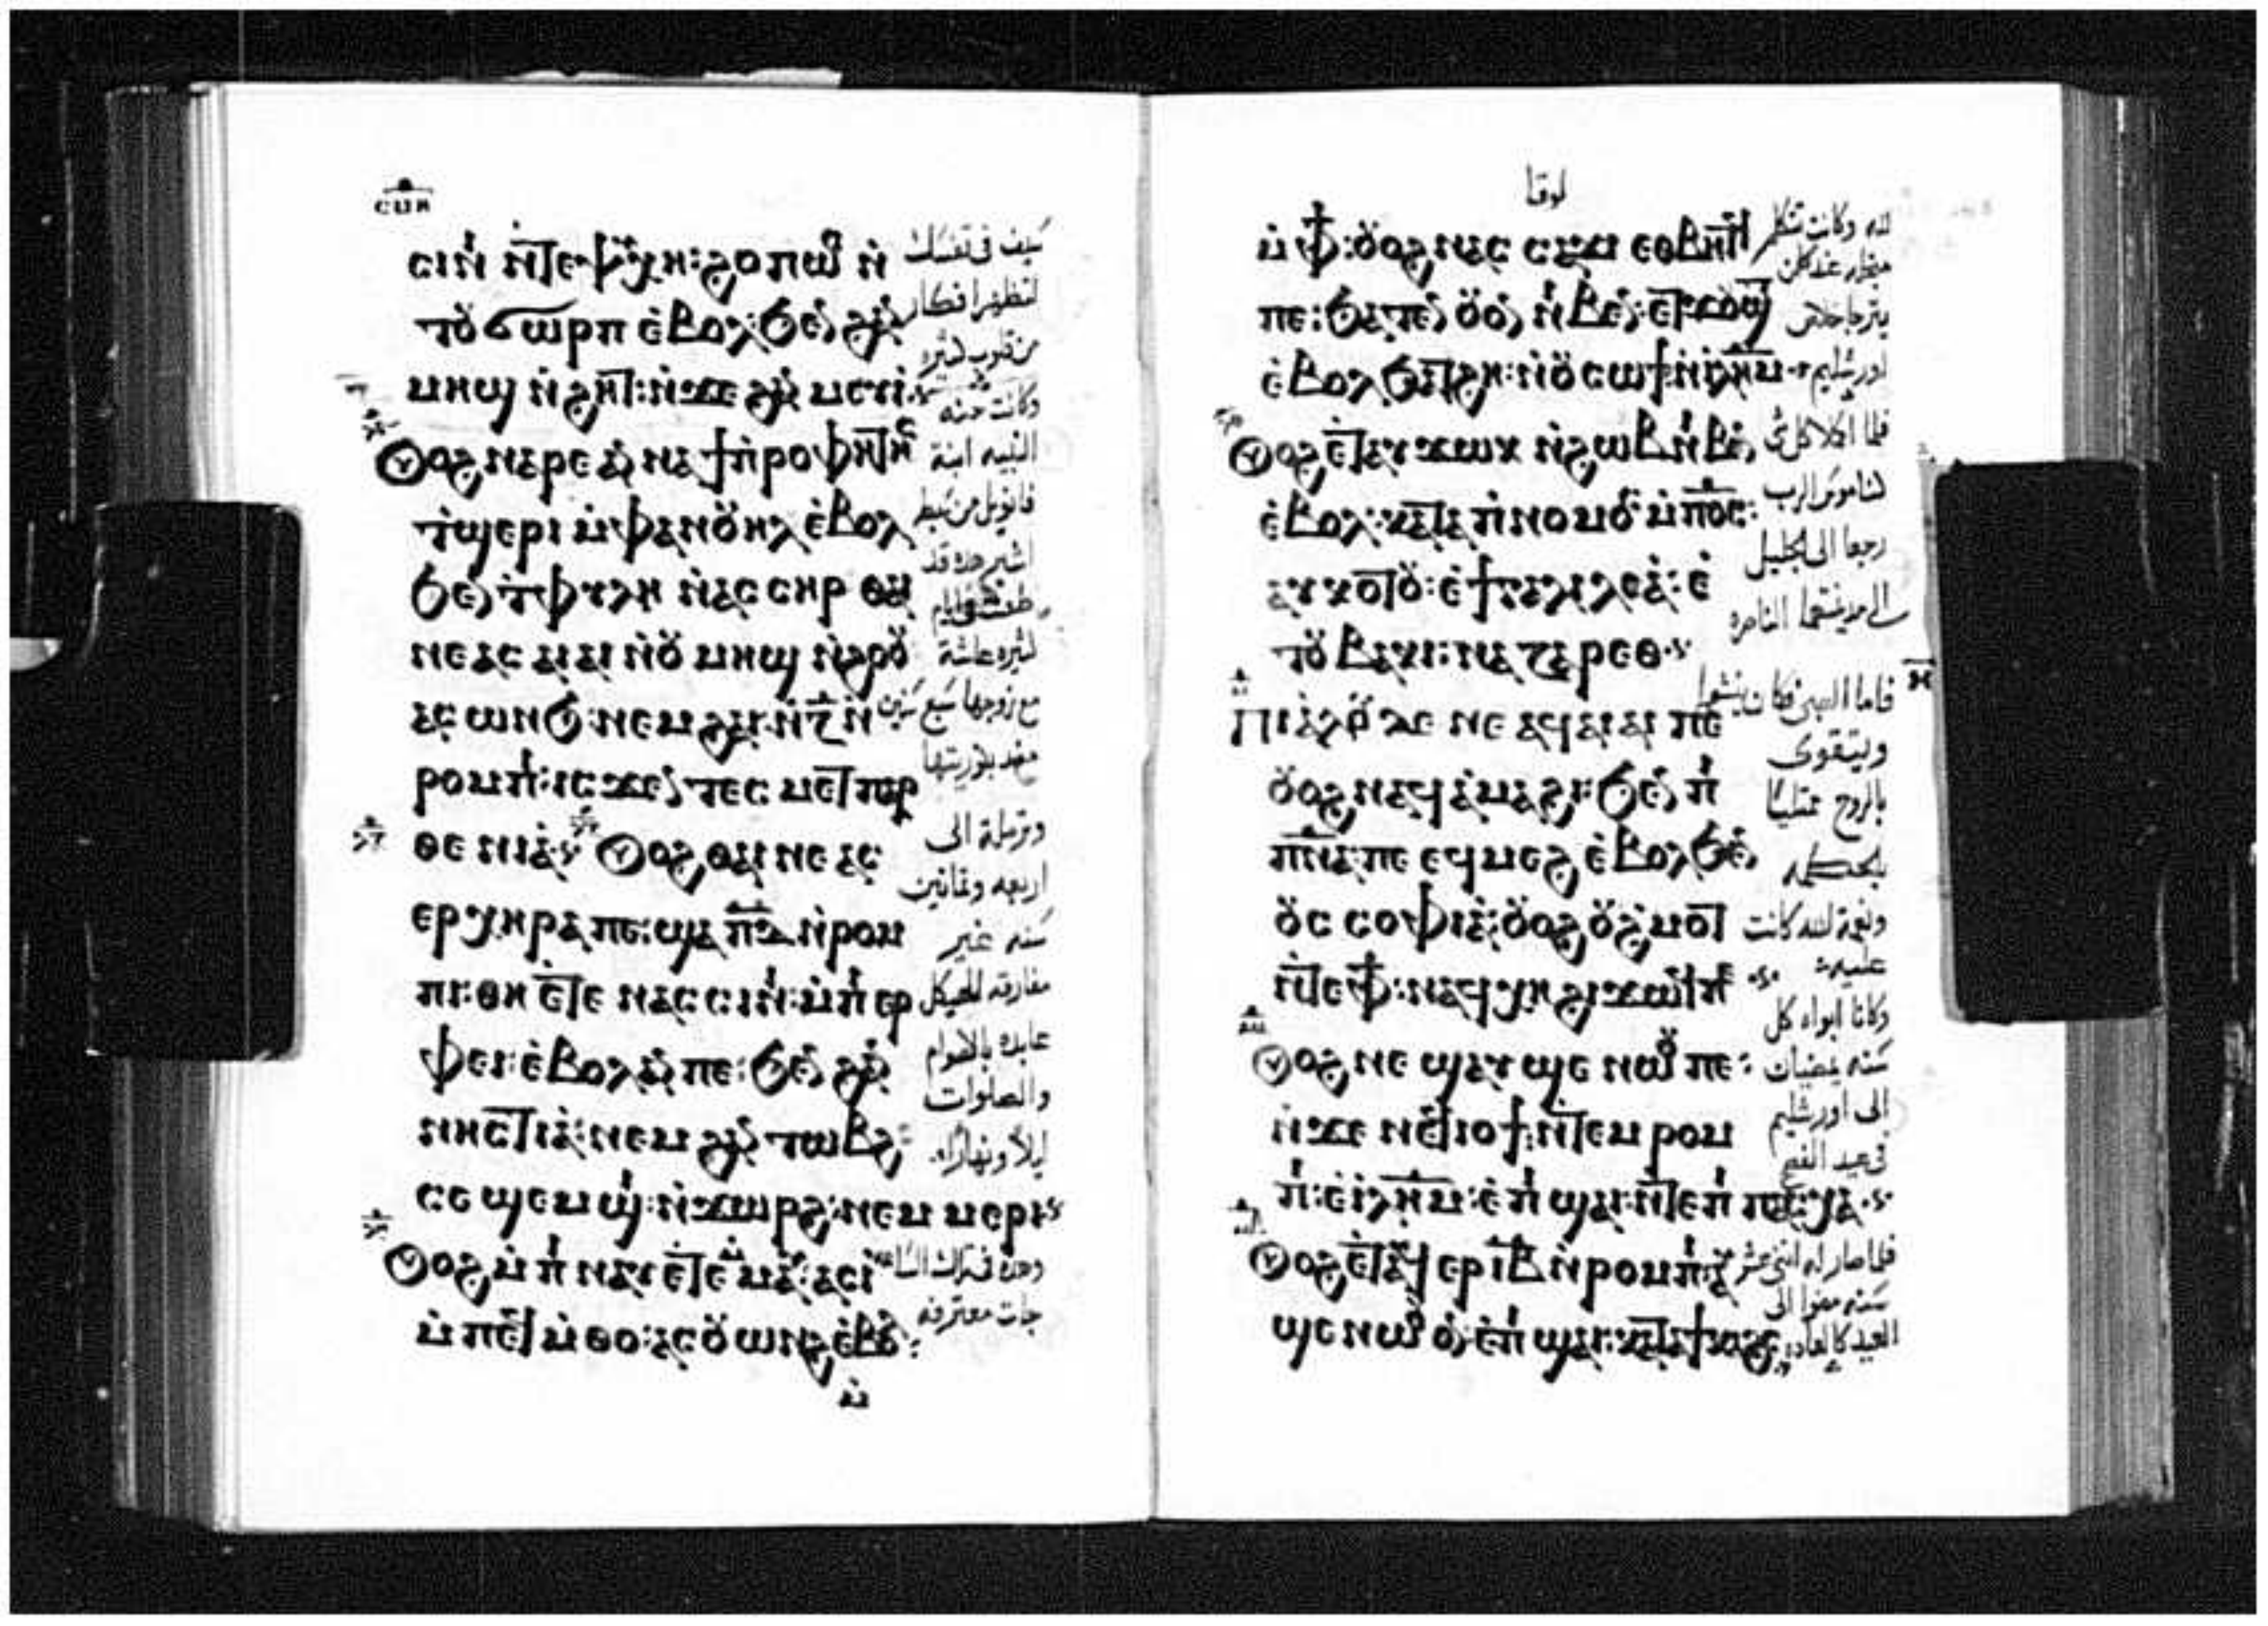 ⲥⲙⲏ
ⲥⲓⲛⲓ ⲛ̇ⲧⲉⲯⲩⲭⲏ: ϩⲟⲡⲱⲥ ⲛ̇
ⲧⲟⲩϭⲱⲣⲡ ⲉ̇ⲃⲟⲗ: ϧⲉⲛ ϩⲁⲛ
ⲙⲏϣ ⲛ̇ϩⲏⲧ: ⲛ̇ϫⲉ ϩⲁⲛ ⲙⲉⲩⲓ
Ⲟⲩⲟϩ ⲛⲁⲣⲉ ⲁⲛⲛⲁ ϯⲡ̇ⲣⲟⲫⲏⲧⲏⲥ
ⲧ̇ϣⲉⲣⲓ ⲙ̇ⲫⲁⲛⲟⲩⲏⲗ ⲉ̇ⲃⲟⲗ
ϧⲉⲛ ⲧ̇ⲫⲩⲗⲏ ⲛ̇ⲁⲥⲥⲏⲣ ⲑⲁⲓ
ⲛⲉⲁⲥ ⲁⲓⲁⲓ ⲛ̇ⲟⲩ ⲙⲏϣ ⲛ̇ⲉϩⲟⲟⲩ
ⲁⲥ ⲱⲛϧ: ⲛⲉⲙ ϩⲁⲓ: ⲛ̇ⲍ̅ ⲛ̇
ⲣⲟⲙⲡⲓ: ⲓⲥϫⲉⲛ ⲧⲉⲥ ⲙⲉⲧⲡⲁⲣ
ⲑⲉⲛⲓⲁ̇: Ⲟⲩⲟϩ ⲑⲁⲓ ⲛⲉ ⲁⲥ
ⲉⲣⲭⲏⲣⲁ ⲡⲉ: ϣⲁ ⲡ̅ⲇ̅ ⲛ̇ⲣⲟⲙ
ⲡⲓ: ⲑⲏ ⲉ̇ⲧⲉ ⲛⲁⲥⲥⲓⲛⲓ: ⲙ̇ⲡⲓ ⲉⲣ
ⲫⲉⲓ: ⲉ̇ⲃⲟⲗ ⲁⲛ ⲡⲉ: ϧⲉⲛ ϩⲁⲛ
ⲛⲏⲥⲧⲓⲁ̇: ⲛⲉⲙ ϩⲁⲛ ⲧⲱⲃϩ:
ⲥⲉ ϣⲉⲙϣⲓ: ⲛ̇ϫⲱⲣϩ: ⲛⲉⲙ ⲙⲉⲣⲓ
Ⲟⲩⲟϩ ⲙ̇ⲡⲓ ⲛⲁⲩ ⲉ̇ⲧⲉ ⲙ̇ⲙⲁⲩ: ⲁⲥⲓ̇
ⲙ̇ⲡⲉⲥⲙ̇ⲑⲟ: ⲁⲥⲟⲩⲱⲛϩ ⲉ̇ⲃⲟⲗ:
ⲙ̇
سيف في نفسك
لتظهر افكار
من قلوب كثيره
وكانت حنه
النبيه ابنة
فانويل من سبط
اشير هذه قد
طعنت في ايام
كثيره عاشة
مع زوجها سبع سنين
بعد بكوريتها
وترملة الى
اربعه وثمانين
سنه غير
مفارقه للهيكل
عابده بالاصوام
والصلوات
ليلاً ونهاراً
وهذه في تلك الساعه
جات معترفه
لوقا
ⲙ̇ⲫϯ: ⲟⲩⲟϩ ⲛⲁⲥ ⲥⲁϫⲓ ⲉⲑⲃⲏⲧϥ
ⲡⲉ: ϧⲁⲧⲉⲛ ⲟⲩⲟⲛ ⲛⲓⲃⲉⲛ: ⲉⲧϫⲟⲩϣⲧ
ⲉ̇ⲃⲟⲗ ϧⲁⲧϩⲏ: ⲛ̇ⲟⲩⲥⲱϯ ⲛ̇ⲓ̇ⲗ̅ⲏ̅ⲙ̅
Ⲟⲩⲟϩ ⲉ̇ⲧⲁⲩϫⲱⲕ ⲛ̇ϩⲱⲃ ⲛⲓⲃⲉⲛ
ⲉ̇ⲃⲟⲗ: ⲕⲁⲧⲁ ⲡ̇ⲛⲟⲙⲟⲥ ⲙ̇ⲡ̅ⲟ̅ⲥ̅:
ⲁⲩⲕⲟⲧⲟⲩ: ⲉ̇ϯⲅⲁⲗⲓⲗⲉⲁ̇: ⲉ̇
ⲧⲟⲩⲃⲁⲕⲓ: ⲛⲁⲍⲁⲣⲉⲑ
Ⲡⲓⲁ̇ⲗⲟⲩ ⲇⲉ ⲛⲉ ⲁϥⲁⲓⲁⲓ ⲡⲉ
ⲟⲩⲟϩ ⲛⲁϥⲁ̇ⲙⲁϩⲓ: ϧⲉⲛ ⲡⲓ
ⲡ̅ⲛ̅ⲁ̅: ⲡⲉ ⲉϥⲙⲉϩ ⲉ̇ⲃⲟⲗ ϧⲉⲛ
ⲟⲩⲥ ⲥⲟⲫⲓⲁ̇: ⲟⲩⲟϩ ⲟⲩϩⲙⲟⲧ
ⲛ̇ⲧⲉⲫϯ: ⲛⲁϥⲭⲏ ϩⲓϫⲱϥ ⲡⲉ
Ⲟⲩⲟϩ ⲛⲉ ϣⲁⲩ ϣⲉ ⲛⲱⲟⲩ ⲡⲉ:
ⲛ̇ϫⲉ ⲛⲉϥⲓⲟϯ: ⲛ̇ⲧⲉⲙ ⲣⲟⲙ
ⲡⲓ: ⲉ̇ⲓ̇ⲗ̅ⲏ̅ⲙ̅: ⲉ̇ⲡⲓ ϣⲁⲓ: ⲛ̇ⲧⲉⲡⲓ ⲡⲁⲥⲭⲁ
Ⲟⲩⲟϩ ⲉ̇ⲧⲁϥ ⲉⲣ ⲓ̅ⲃ̅ ⲛ̇ⲣⲟⲙⲡⲓ: ⲁⲩ
ϣⲉ ⲛⲱⲟⲩ ⲟⲛ: ⲉ̇ⲡⲓ ϣⲁⲓ: ⲕⲁⲧⲁ ϯⲕⲁϩⲥ
لله وكانت تتكلم
من اجله عند كل من
يترجا خلاص
اورشليم
فلما اكملا كل شي
كناموس الرب
رجعا الى الجليل
الى مدينتهما الناصره
فاما الصبي فكان ينشوا
ويتقوى
بالروح ممتلياً
بالحكمه
ونعمة الله كانت
عليه
وكانا ابواه كل
سنه يمضيان
الى اورشليم
في عيد الفصح
فلما صار له اثني عشر
سنه مضوا الى
العيد كالعاده